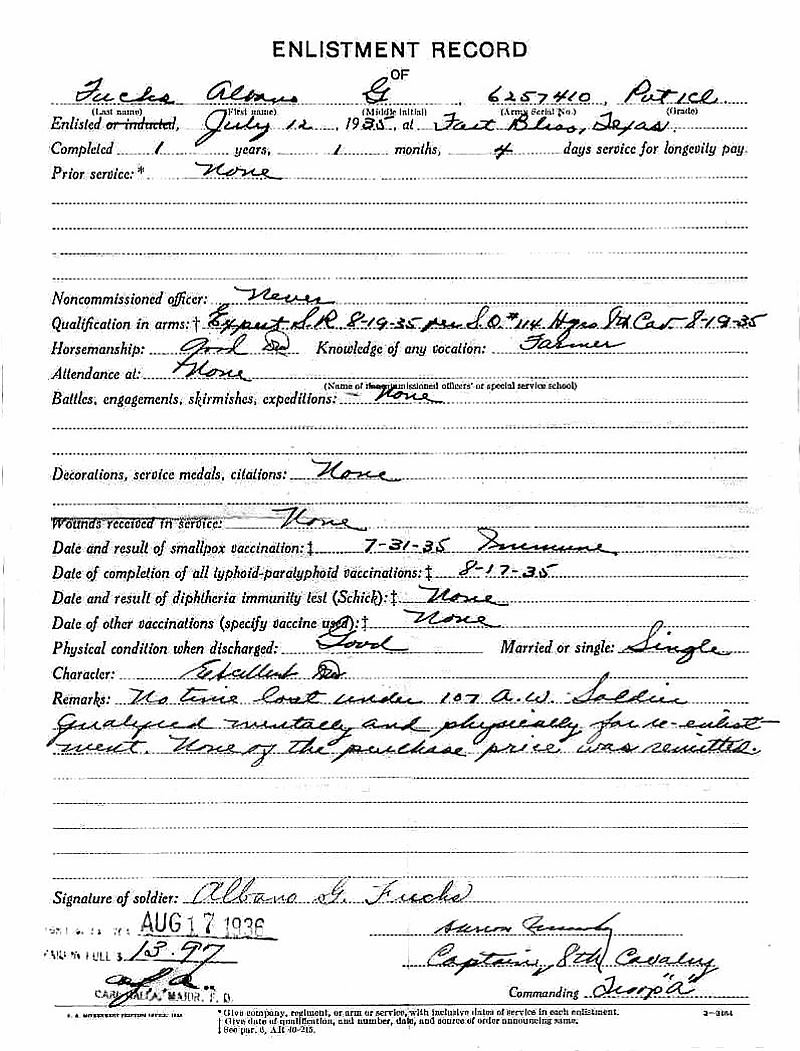 ENLISTMENT RECORD
OF
Fuchs Albano G , 6257410 , Pvt 1cl
(Last name) (First name) (Middle initial) (Army Serial No.) (Grade)
Enlisted or inducted, July 12 , 1935, at Fort Bliss, Texas.
Completed 1 years, 1 months, 4 days service for longevity pay.
Prior service:* None
Noncommissioned officer: Never
Qualification in arms:† Expert S.R. 8-19-35 per S.O. #114 Hqrs 8th Cav 8-19-35
Horsemanship: Good Knowledge of any vocation: Farmer
Attendance at: None
(Name of noncommissioned officers' or special service school)
Battles, engagements, skirmishes, expeditions: None
Decorations, service medals, citations: None
Wounds received in service: None
Date and result of smallpox vaccination:‡ 7-31-35 Immune
Date of completion of all typhoid-paratyphoid vaccinations:‡ 8-17-35
Date and result of diphtheria immunity test (Schick):‡ None
Date of other vaccinations (specify vaccine used):‡ None
Physical condition when discharged: Good Married or single: Single
Character: Excellent
Remarks: No time lost under 107 A.W. Soldier
qualified mentally and physically for re-enlist-
ment. None of the purchase price was remitted.
Signature of soldier: Albano G. Fuchs
AUG 17 1936
FULL $ 13.97
Captain, 8th Cavalry
MAJOR, F. D.
Commanding Troop "A"
U. S. GOVERNMENT PRINTING OFFICE
* Give company, regiment, or arm or service, with inclusive dates of service in each enlistment.
† Give date of qualification, and number, date, and source of order announcing same.
‡ See par. 6, AR 40-215.